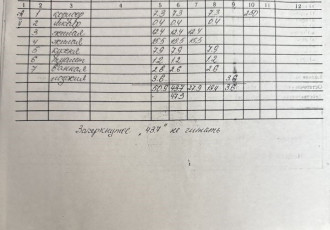 1 2 3 4 5 6 7 8 9 10 11 12
1 коридор 7.9 7.9 7.9
2 шкаф 0.4 0.4 0.4
3 жилая 12.4 12.4 12.4
4 жилая 15.5 15.5 15.5
5 кухня 7.9 7.9 7.9
6 туалет 1.2 1.2 1.2
7 ванная 2.6 2.6 2.6
лоджия 3.6 3.6
43.7 27.9 3.6
Зачеркнутое „43.7" не читать